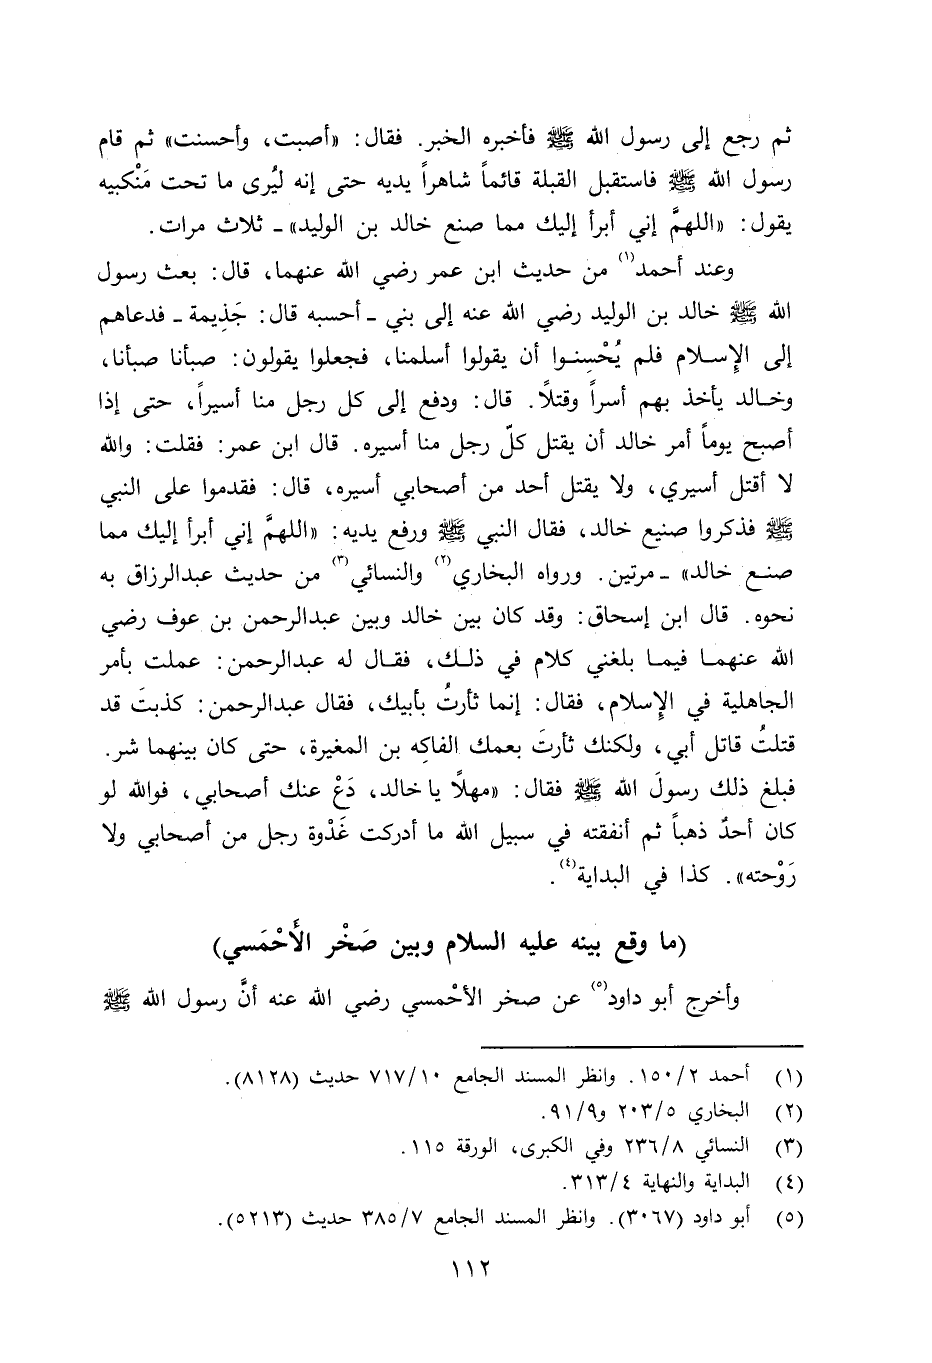 ثم رجع إلى رسول الله ﷺ فأخبره الخبر. فقال: «أصبت، وأحسنت» ثم قام
رسول الله ﷺ فاستقبل القبلة قائماً شاهراً يديه حتى إنه ليُرى ما تحت مَنْكبيه
يقول: «اللهمَّ إني أبرأ إليك مما صنع خالد بن الوليد» ـ ثلاث مرات.
وعند أحمد(١) من حديث ابن عمر رضي الله عنهما، قال: بعث رسول
الله ﷺ خالد بن الوليد رضي الله عنه إلى بني ـ أحسبه قال: جَذِيمة ـ فدعاهم
إلى الإِسلام فلم يُحْسِنوا أن يقولوا أسلمنا، فجعلوا يقولون: صبأنا صبأنا،
وخالد يأخذ بهم أسراً وقتلاً. قال: ودفع إلى كل رجل منا أسيراً، حتى إذا
أصبح يوماً أمر خالد أن يقتل كلّ رجل منا أسيره. قال ابن عمر: فقلت: والله
لا أقتل أسيري، ولا يقتل أحد من أصحابي أسيره، قال: فقدموا على النبي
ﷺ فذكروا صنيع خالد، فقال النبي ﷺ ورفع يديه: «اللهمَّ إني أبرأ إليك مما
صنع خالد» ـ مرتين. ورواه البخاري(٢) والنسائي(٣) من حديث عبدالرزاق به
نحوه. قال ابن إسحاق: وقد كان بين خالد وبين عبدالرحمن بن عوف رضي
الله عنهما فيما بلغني كلام في ذلك، فقال له عبدالرحمن: عملت بأمر
الجاهلية في الإِسلام، فقال: إنما ثأرتُ بأبيك، فقال عبدالرحمن: كذبتَ قد
قتلتُ قاتل أبي، ولكنك ثأرتَ بعمك الفاكِه بن المغيرة، حتى كان بينهما شر.
فبلغ ذلك رسولَ الله ﷺ فقال: «مهلاً يا خالد، دَعْ عنك أصحابي، فوالله لو
كان أحدٌ ذهباً ثم أنفقته في سبيل الله ما أدركت غَدْوة رجل من أصحابي ولا
رَوْحته». كذا في البداية(٤).
(ما وقع بينه عليه السلام وبين صَخْر الأَحْمَسي)
وأخرج أبو داود(٥) عن صخر الأحْمسي رضي الله عنه أنَّ رسول الله ﷺ
(١) أحمد ٢/ ١٥٠. وانظر المسند الجامع ١٠/ ٧١٧ حديث (٨١٢٨).
(٢) البخاري ٥/ ٢٠٣ و٩/ ٩١.
(٣) النسائي ٨/ ٢٣٦ وفي الكبرى، الورقة ١١٥.
(٤) البداية والنهاية ٤/ ٣١٣.
(٥) أبو داود (٣٠٦٧). وانظر المسند الجامع ٧/ ٣٨٥ حديث (٥٢١٣).
١١٢